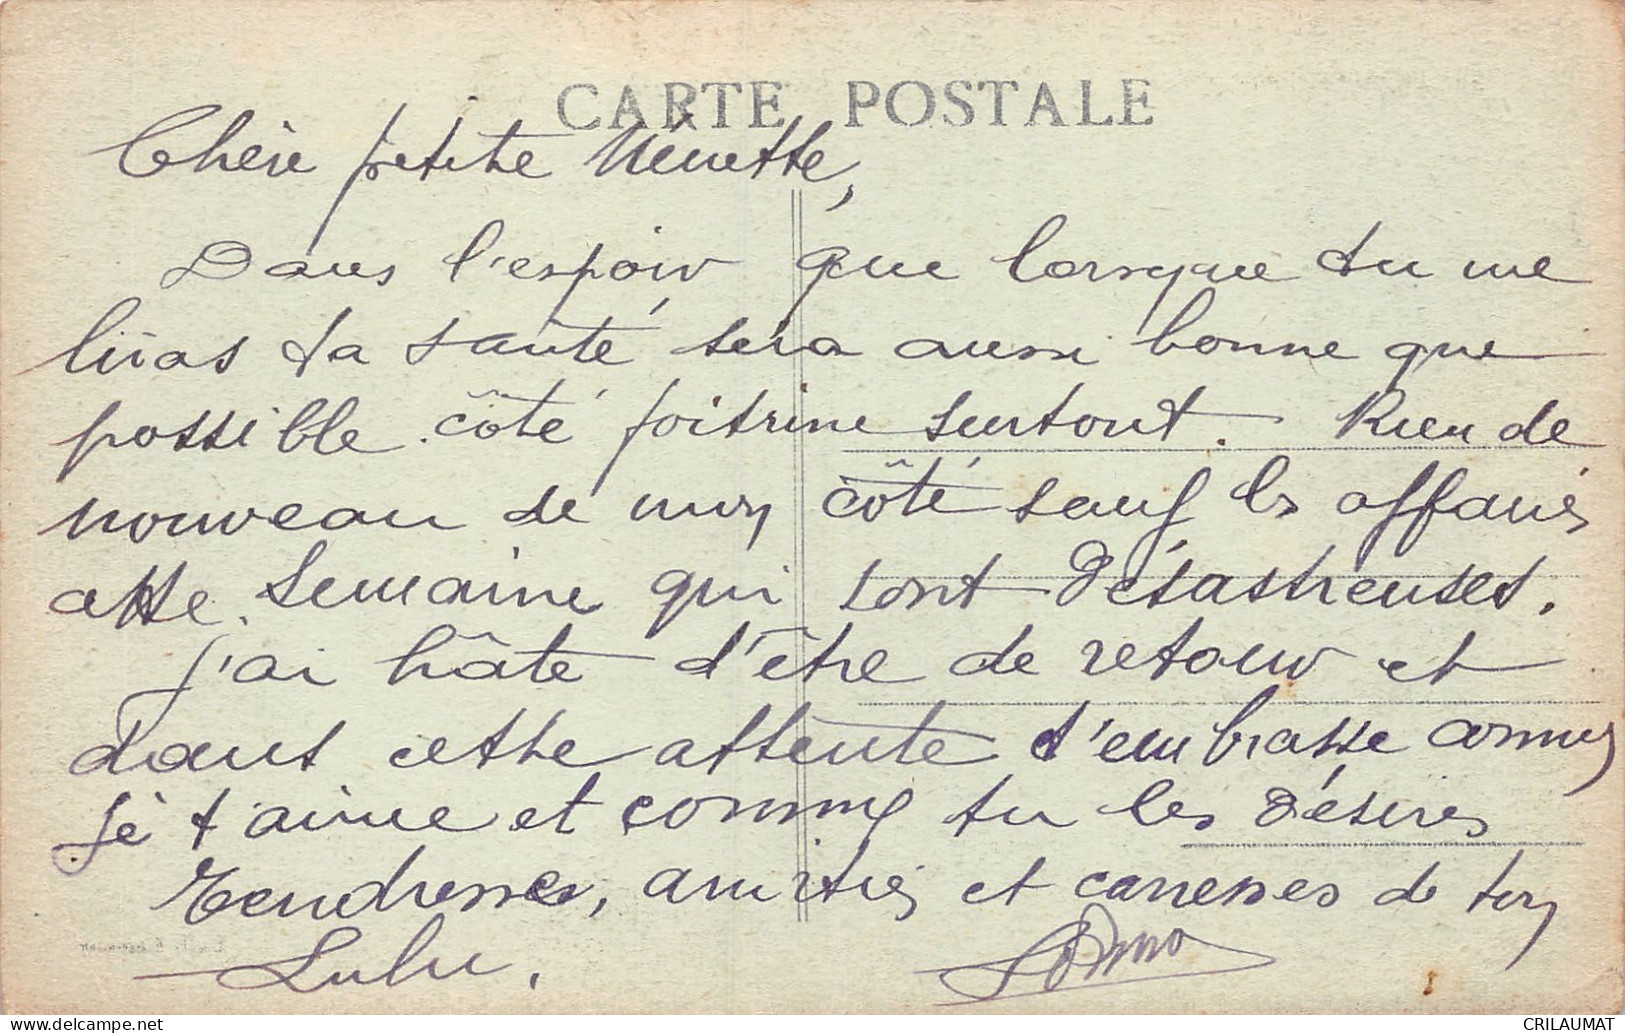 CARTE POSTALE
Chère petite Nénette,
Dans l'espoir que lorsque tu me
liras ta santé sera aussi bonne que
possible côté poitrine surtout. Rien de
nouveau de mon côté sauf les affaires
cette semaine qui sont désastreuses.
J'ai hâte d'être de retour et
dans cette attente t'embrasse comme
je t'aime et comme tu les désires
Tendresses, amitiés et caresses de ton
Lulu.
CRILAUMAT
www.delcampe.net